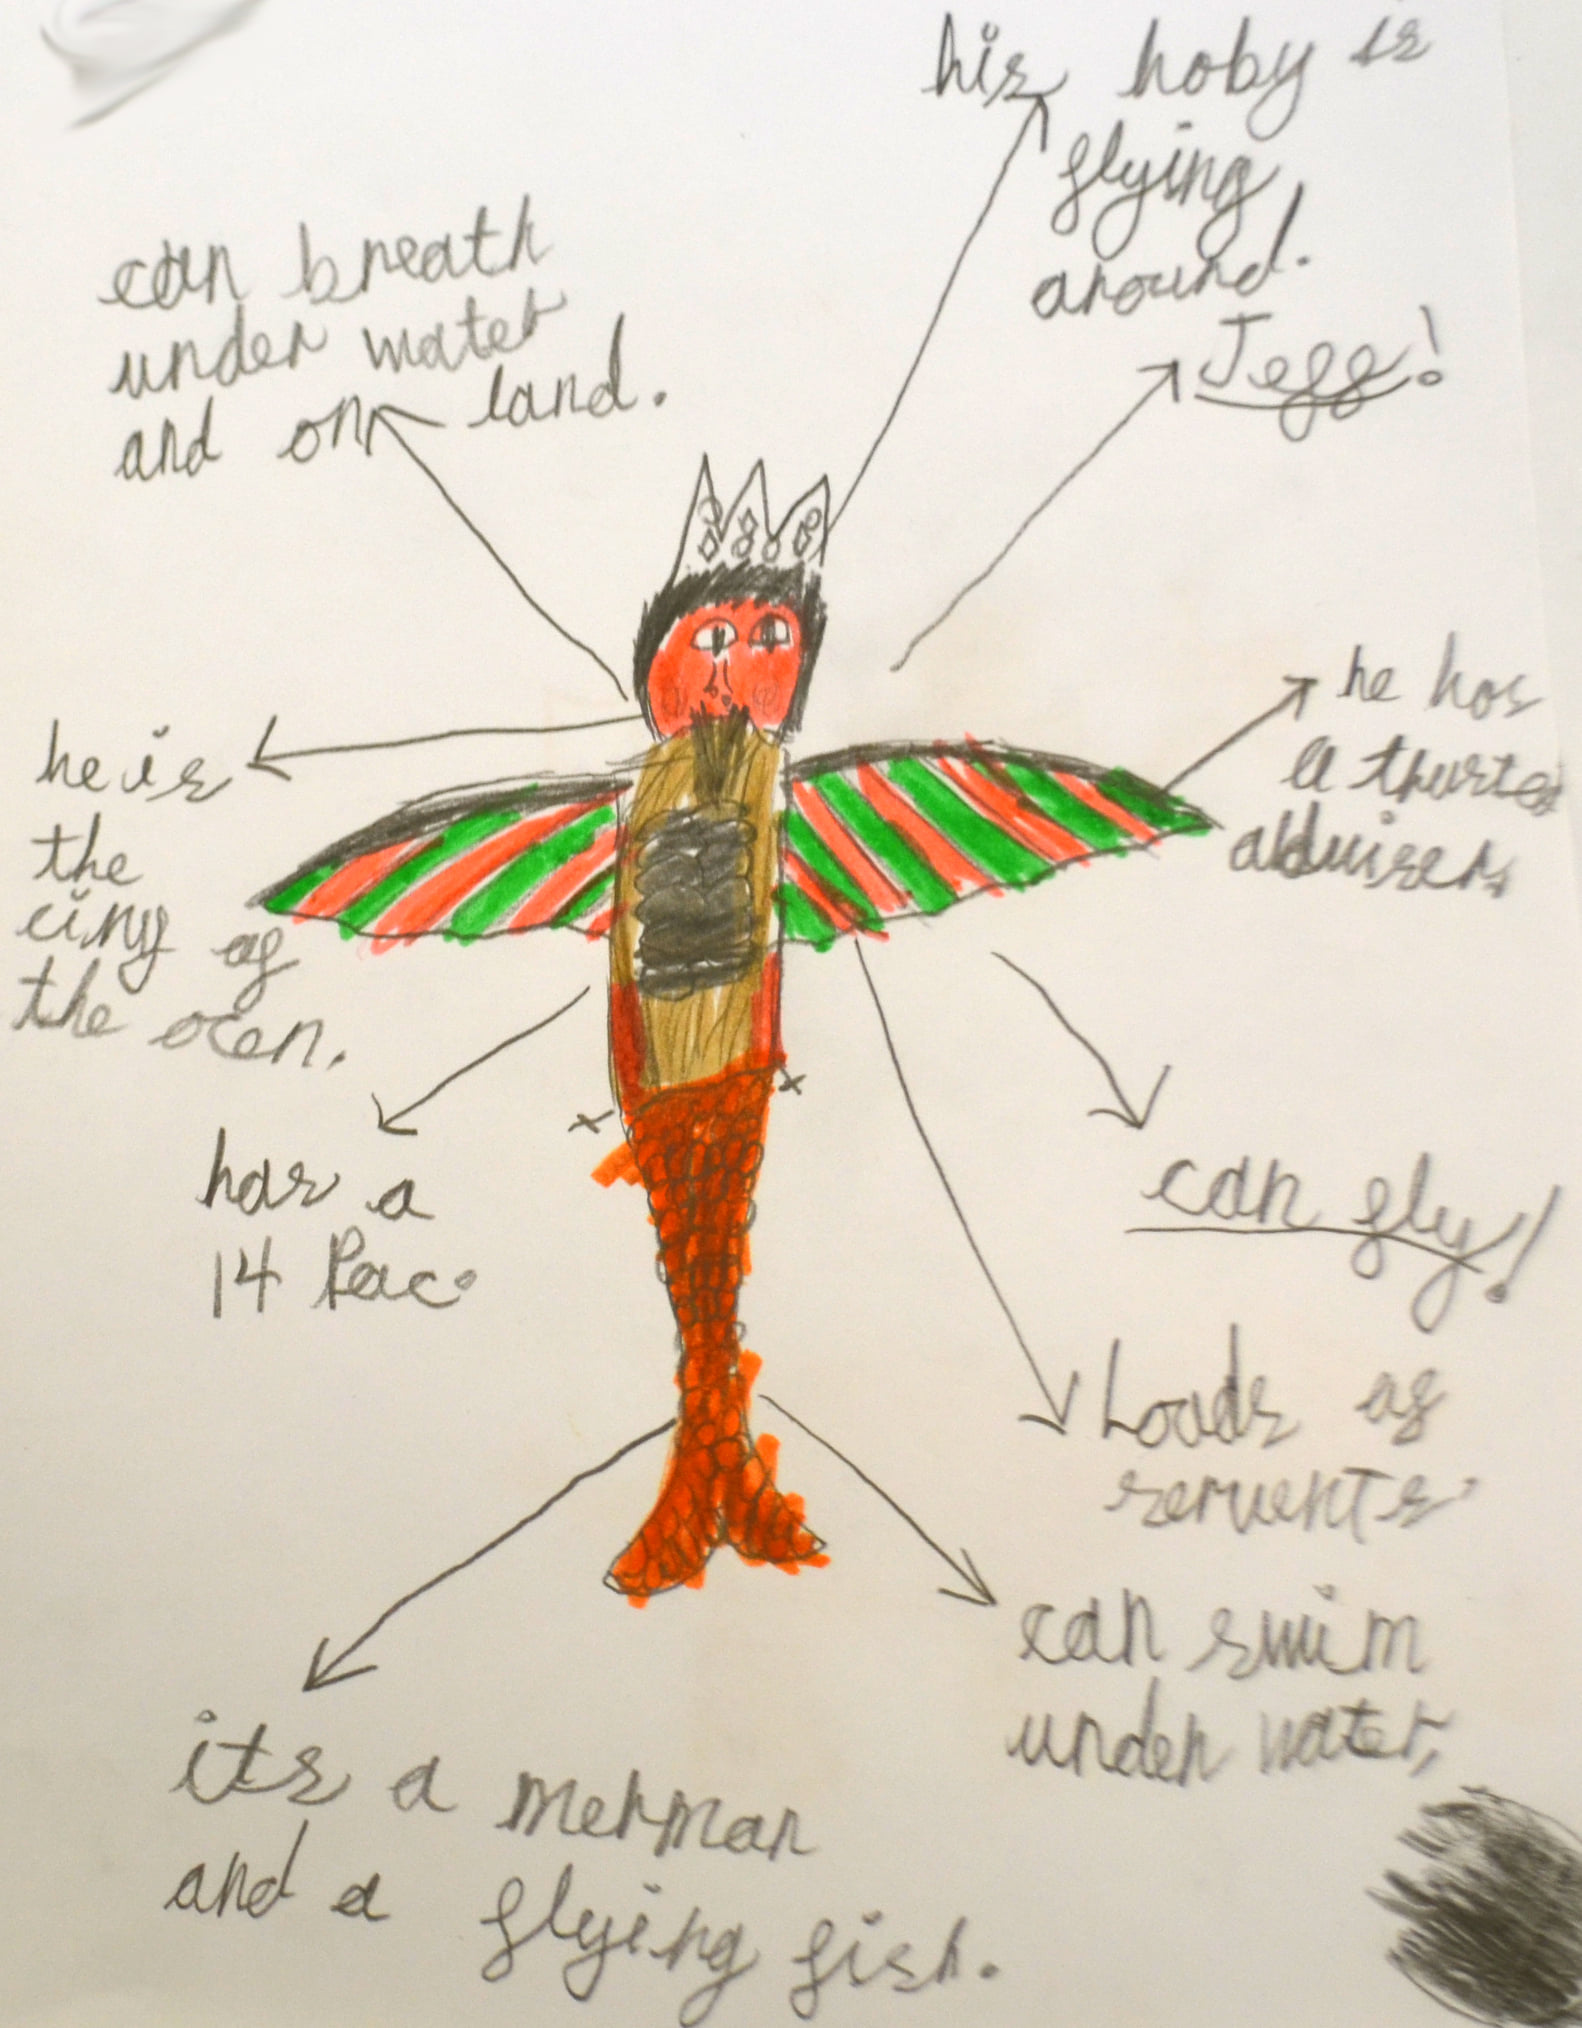 his hoby is
flying
around.
Jeff!
can breath
under water
and on land.
he has
a thurted
abduiser,
he is
the cing of
the ocen.
has a
14 Pac.
can fly!
Loads of
servents.
can swim
under water,
its a merman
and a flying fish.